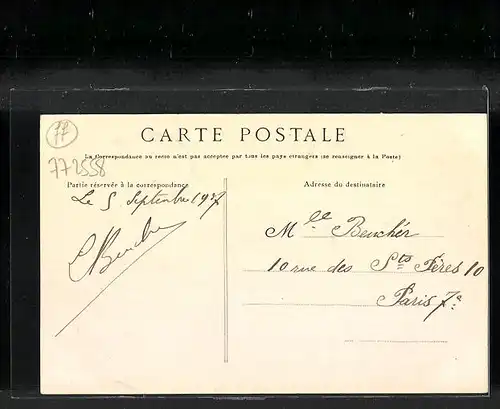 77
772558
CARTE POSTALE
La Correspondance au recto n'est pas acceptée par tous les pays étrangers (se renseigner à la Poste)
Partie réservée à la correspondance
Adresse du destinataire
Le 5 Septembre 1907
Mlle Beucher
10 rue des Sts Pères 10
Paris 7e